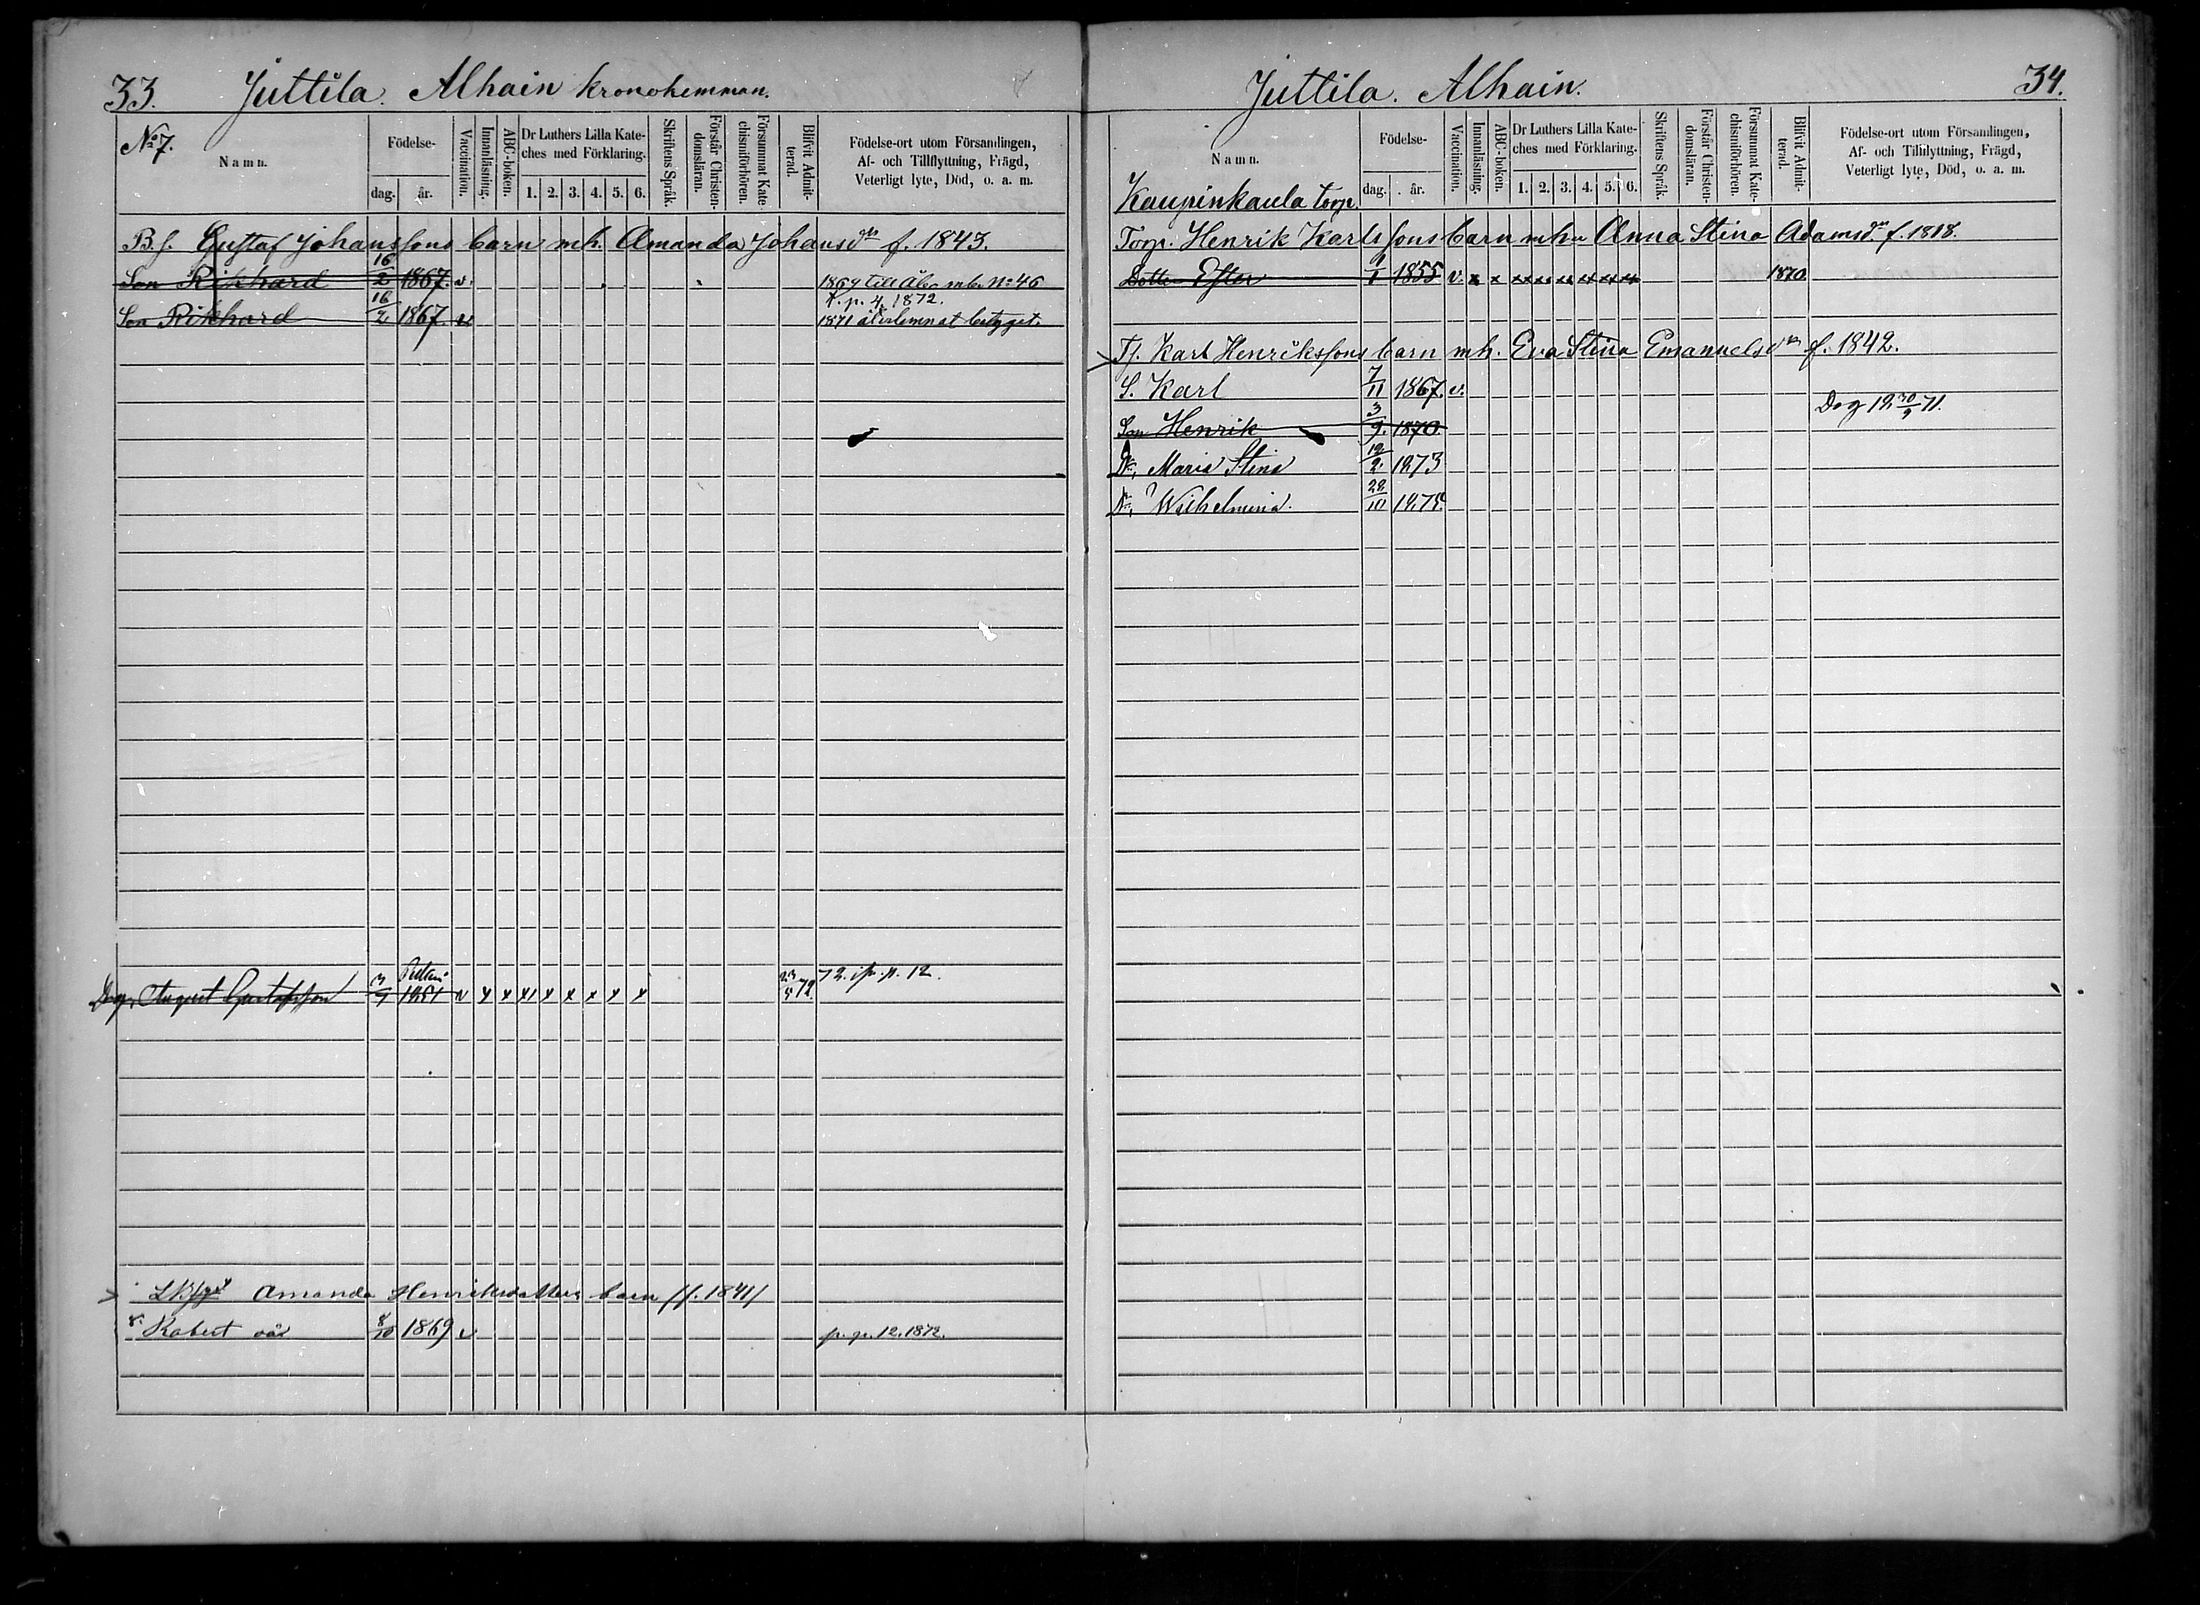 33. Juttila. Alhain kronohemman.
No 7.
Namn.
Födelse-
dag. år.
Vaccination.
Innanläsning.
ABC-boken.
Dr Luthers Lilla Kate-
ches med Förklaring.
1. 2. 3. 4. 5. 6.
Skriftens Språk.
Förstår Christen-
domsläran.
Försummat Kate-
chismiförhören.
Blifvit Admit-
terad.
Födelse-ort utom Församlingen,
Af- och Tillflyttning, Frägd,
Veterligt lyte, Död, o. a. m.
B. s. Gustaf Johanssons barn mh. Amanda Johansdtr f. 1843.
Son Rikhard 16/2 1867. v. 1869 till mb. No 46
K. p. 4. 1872.
Son Rikhard 16/2 1867. v. 1871 återlemnat betyget.
Drg. August Gustafsson 3/9 1851 v x x x x x x x x 23/5 72. 72. p. 12.
Amanda Henriksdotters barn /f. 1841/
Robert oä 8/10 1869 v p. 12. 1872.
Juttila. Alhain. 34.
Namn.
Födelse-
dag. år.
Vaccination.
Innanläsning.
ABC-boken.
Dr Luthers Lilla Kate-
ches med Förklaring.
1. 2. 3. 4. 5. 6.
Skriftens Språk.
Förstår Christen-
domsläran.
Försummat Kate-
chismiförhören.
Blifvit Admit-
terad.
Födelse-ort utom Församlingen,
Af- och Tillflyttning, Frägd,
Veterligt lyte, Död, o. a. m.
Kaupinkaula torp.
Torp. Henrik Karlssons barn mhu Anna Stina Adamsdr f. 1818.
Dotter Ester 1855 v. x x xx xx xx xx xx xx 1870.
Tj. Karl Henrikssons barn mh. Eva Stina Emanuelsdr f. 1842.
S. Karl 7/11 1867. v.
Son Henrik 3/9. 1870. Dog 30/9 71.
Dr. Maria Stina 12/2. 1873
Dr. Wilhelmina. 28/10 1875.